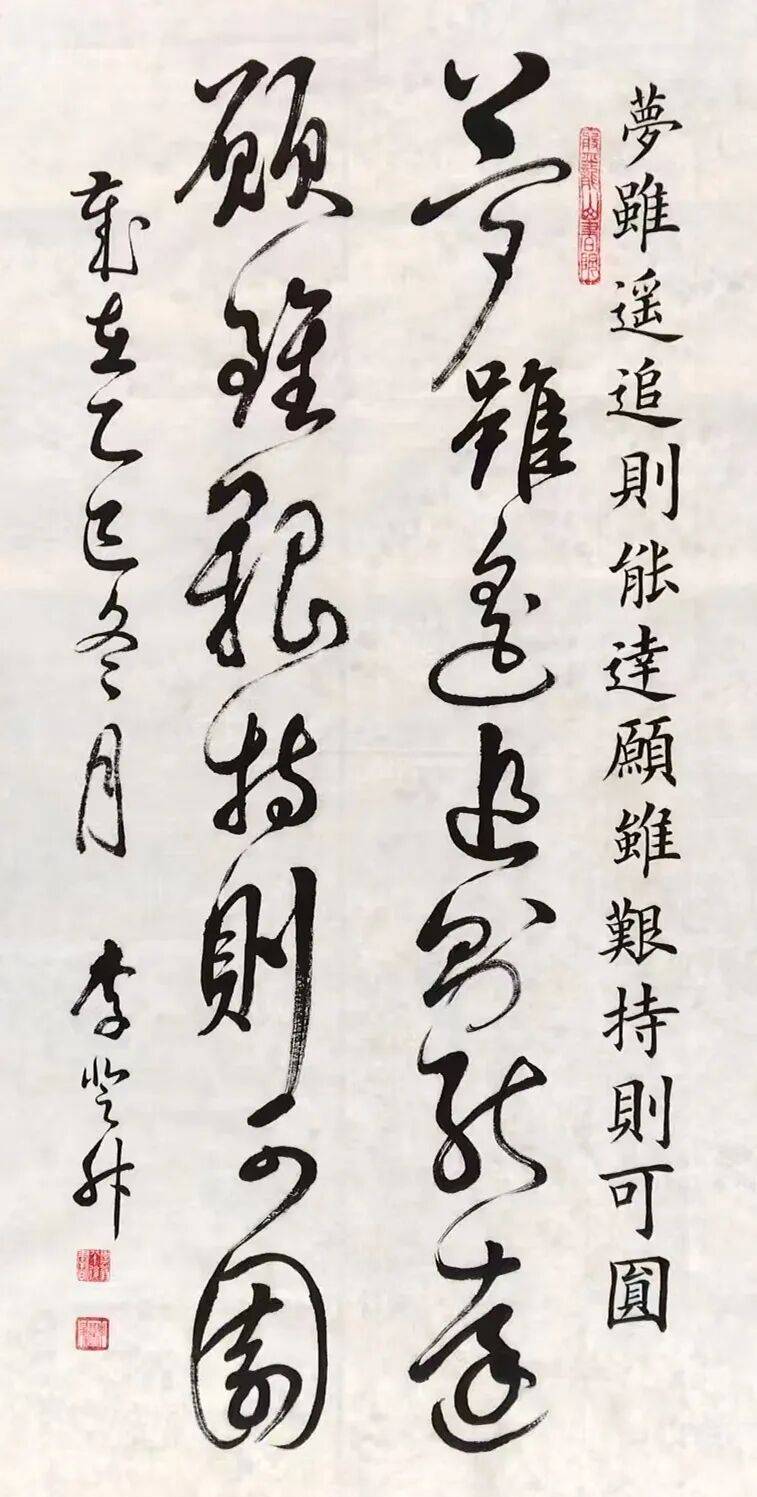 夢雖遥追則能達願雖艱持則可圓
夢雖遥追則能達
願雖艱持則可圓
歲在乙巳冬月 李登科